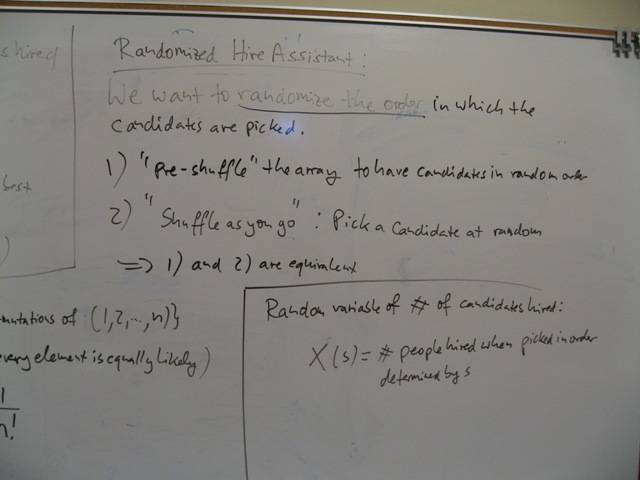 s hired
best
)
Randomized Hire Assistant:
We want to randomize the order in which the
candidates are picked.
1) "pre-shuffle" the array to have candidates in random order
2) "Shuffle as you go" : Pick a candidate at random
=> 1) and 2) are equivalent
mutations of (1,2,...,n)}
every element is equally likely)
1
n!
Random variable of # of candidates hired:
X(s) = # people hired when picked in order
determined by s